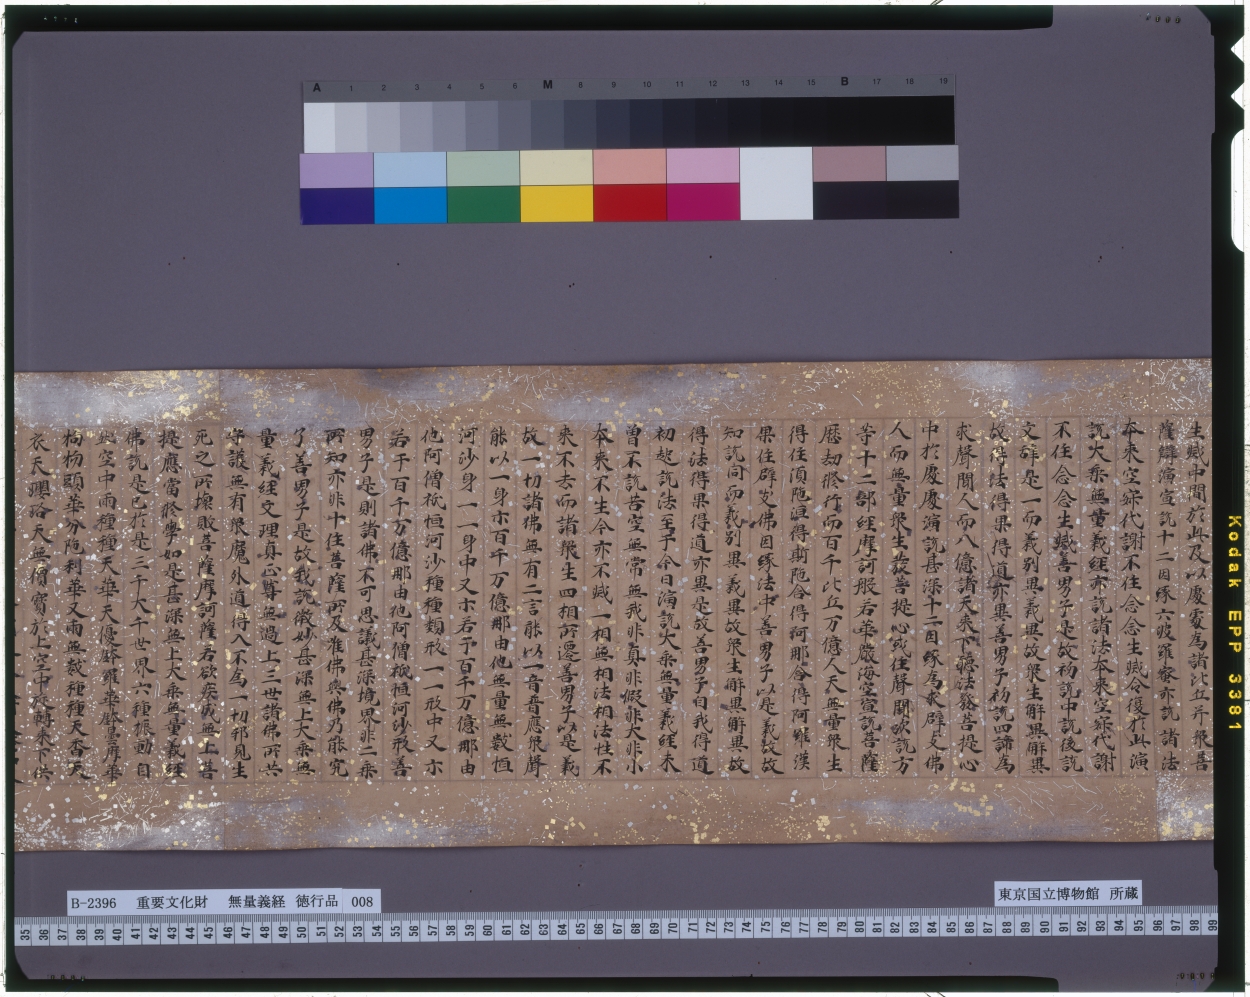 A 1 2 3 4 5 6 M 8 9 10 11 12 13 14 15 B 17 18 19
生滅中間於此及以處處為諸比丘并衆菩
薩辯演宣說十二因緣六波羅蜜亦說諸法
本來空寂代謝不住念念生滅今復於此演
說大乘無量義經亦說諸法本來空寂代謝
不住念念生滅善男子是故初說中說後說
文辭是一而義別異義異故衆生解異解異
故得法得果得道亦異善男子初說四諦為
求聲聞人而八億諸天來下聽法發菩提心
中於處處演說甚深十二因緣為求辟支佛
人而無量衆生發菩提心或住聲聞次說方
等十二部經摩訶般若華嚴海空宣說菩薩
歷劫修行而百千比丘万億人天無量衆生
得住須陀洹得斯陀含得阿那含得阿羅漢
果住辟支佛因緣法中善男子以是義故故
知說同而義別異義異故衆生解異解異故
得法得果得道亦異是故善男子自我得道
初起說法至于今日演說大乘無量義經未
曾不說苦空無常無我非真非假非大非小
本來不生今亦不滅一相無相法相法性不
來不去而諸衆生四相所遷善男子以是義
故一切諸佛無有二言能以一音普應衆聲
能以一身示百千万億那由他無量無數恒
河沙身一一身中又示若干百千万億那由
他阿僧祇恒河沙種種類形一一形中又示
若干百千万億那由他阿僧祇恒河沙形善
男子是則諸佛不可思議甚深境界非二乘
所知亦非十住菩薩所及唯佛與佛乃能究
了善男子是故我說微妙甚深無上大乘無
量義經文理真正尊無過上三世諸佛所共
守護無有衆魔外道得入不為一切邪見生
死之所壞敗菩薩摩訶薩若欲疾成無上菩
提應當修學如是甚深無上大乘無量義經
佛說是已於是三千大千世界六種振動自
然空中雨種種天華天優鉢羅華鉢曇摩華
拘物頭華分陀利華又雨無數種種天香天
衣天瓔珞天無價寶於上空中旋轉來下供
Kodak EPP 3381
B-2396 重要文化財 無量義経 徳行品 008
東京国立博物館 所蔵
35 36 37 38 39 40 41 42 43 44 45 46 47 48 49 50 51 52 53 54 55 56 57 58 59 60 61 62 63 64 65 66 67 68 69 70 71 72 73 74 75 76 77 78 79 80 81 82 83 84 85 86 87 88 89 90 91 92 93 94 95 96 97 98 99